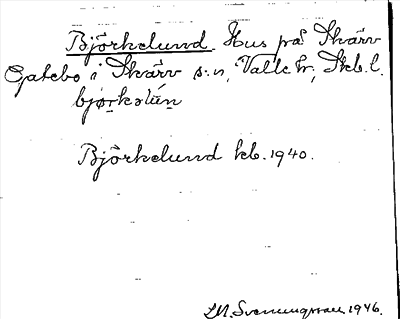 Björkelund. Hus på Skärv
Gatebo i Skärv s:n, Valle hr, Skb. l.
bjørkəlún
Björkelund kb. 1940.
M. Svenungsson 1946.